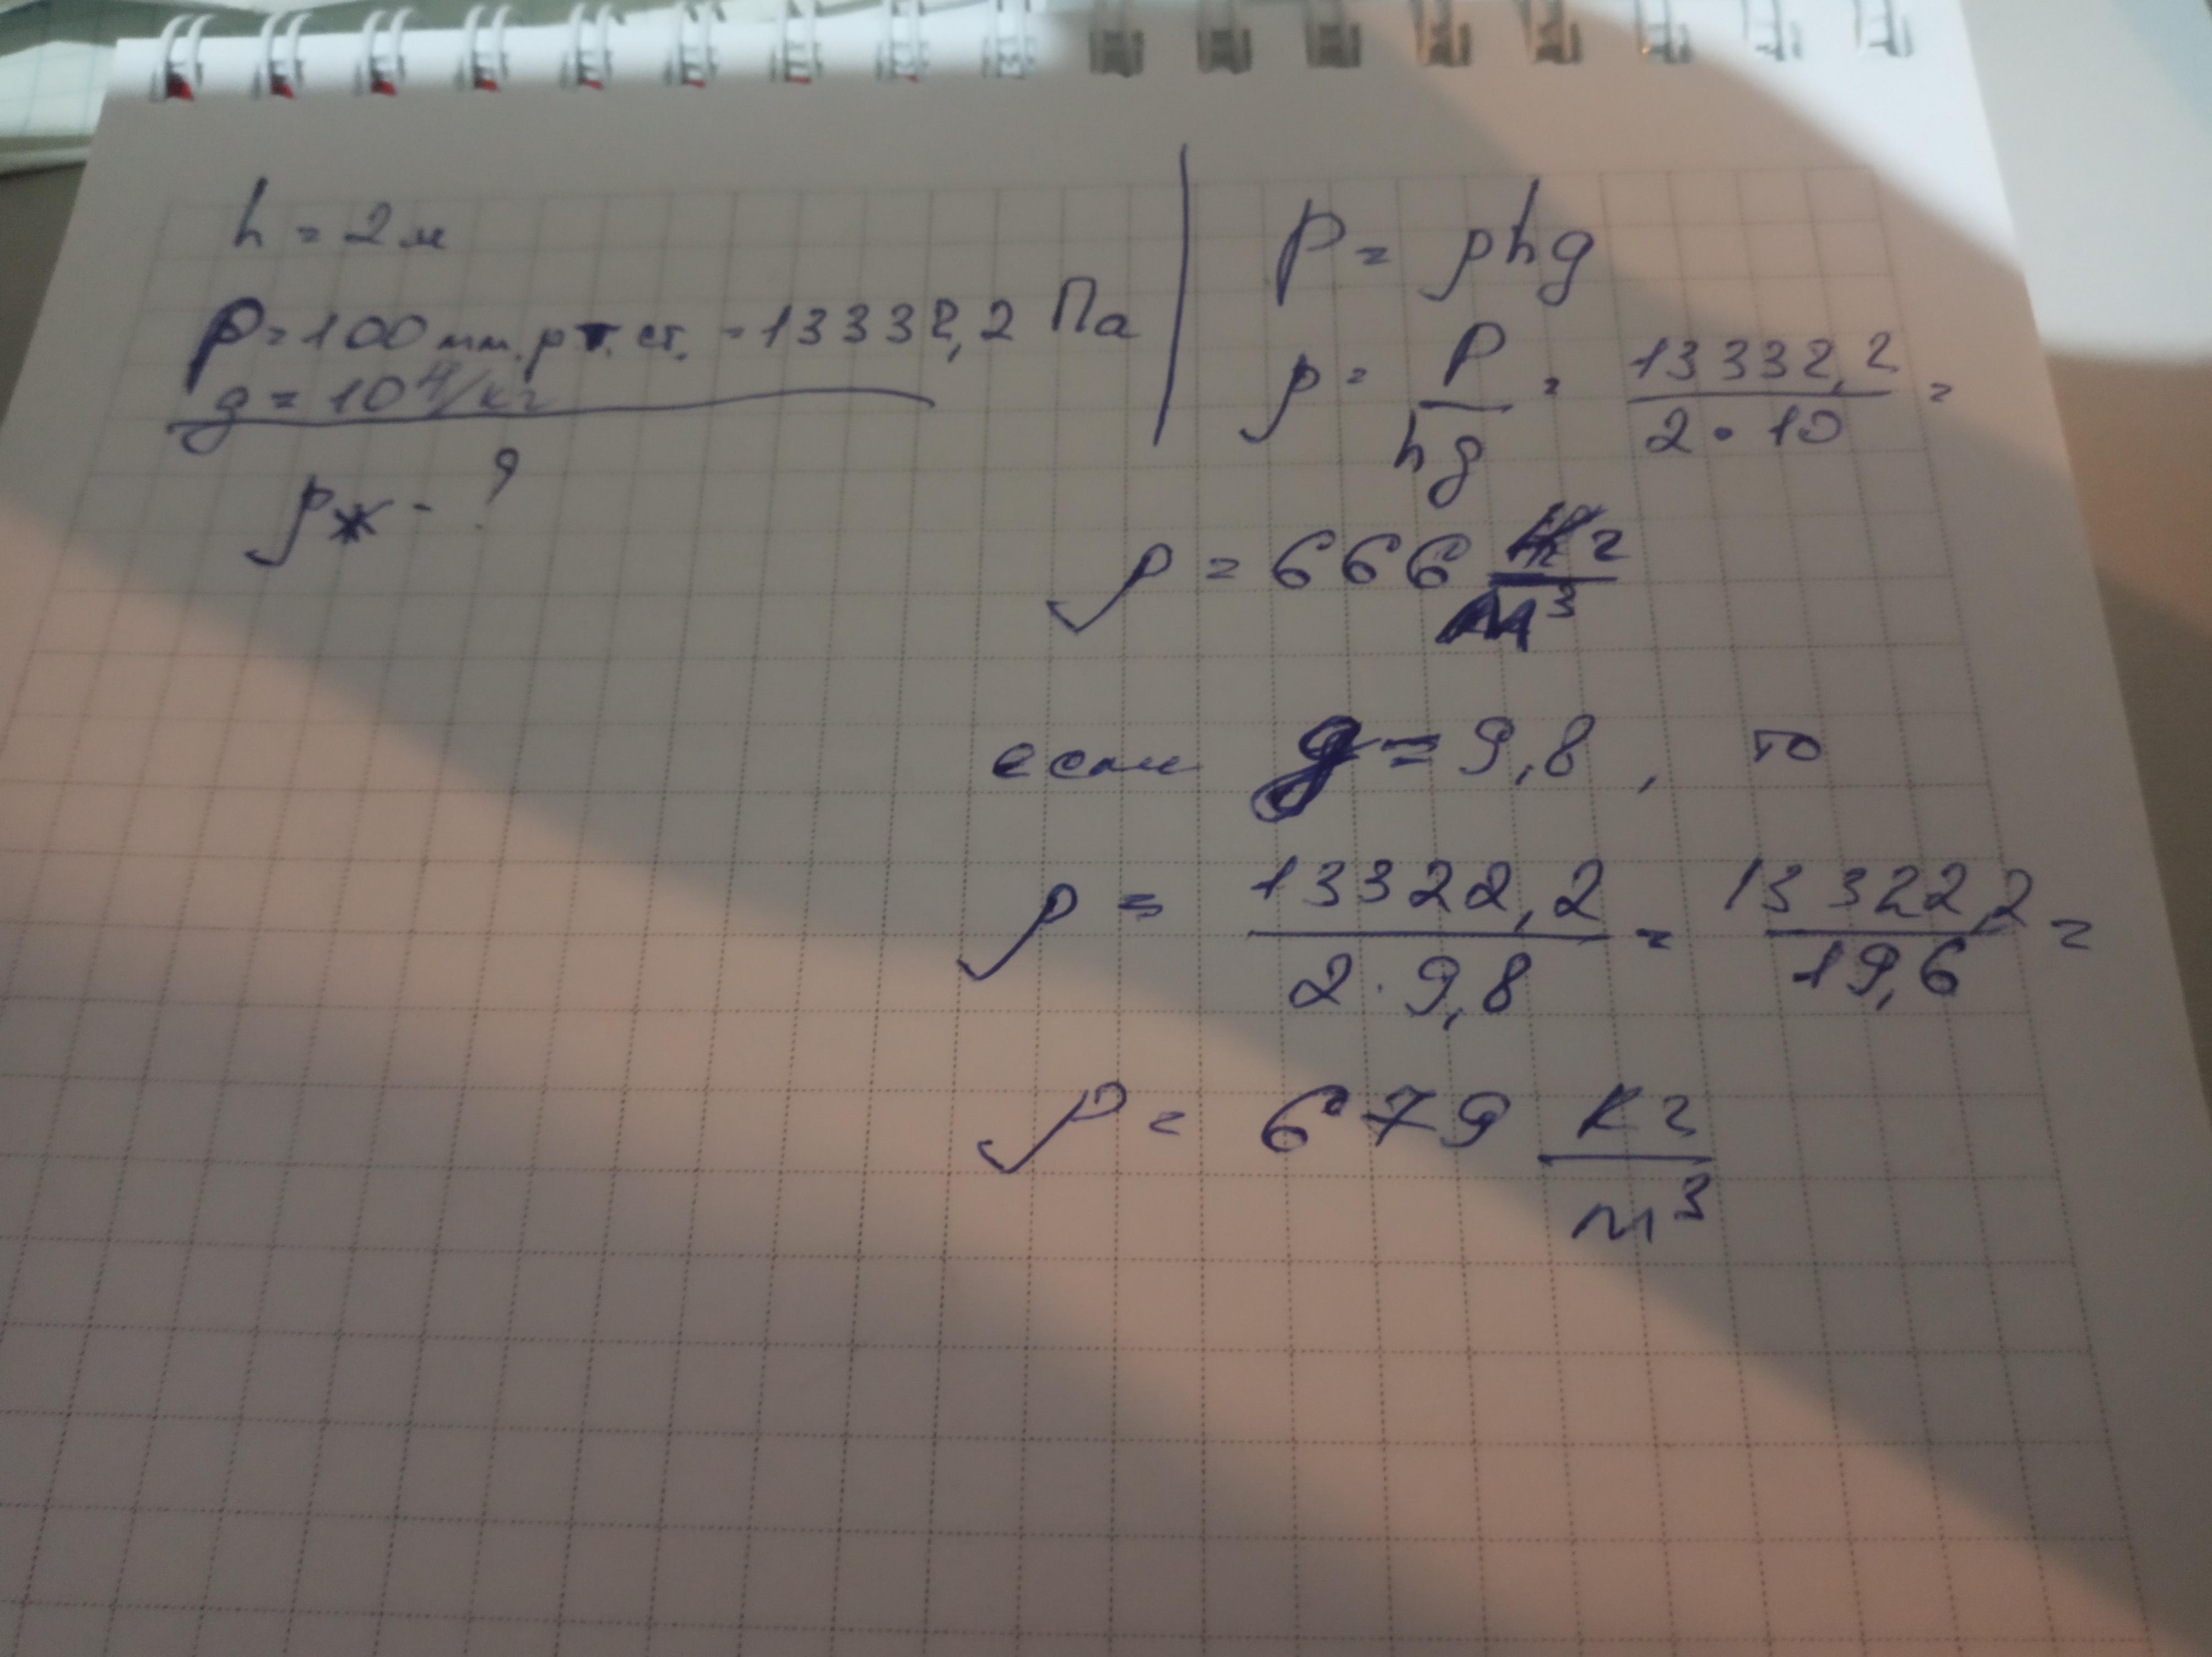 h = 2 м
p = 100 мм. рт. ст. = 13332,2 Па
g = 10 Н/кг
ρж - ?
P = ρhg
ρ = P/hg = 13332,2/2 • 10 =
ρ = 666 кг/м³
если g = 9,8, то
ρ = 13322,2/2 · 9,8 = 13322,2/19,6 =
ρ = 679 кг/м³